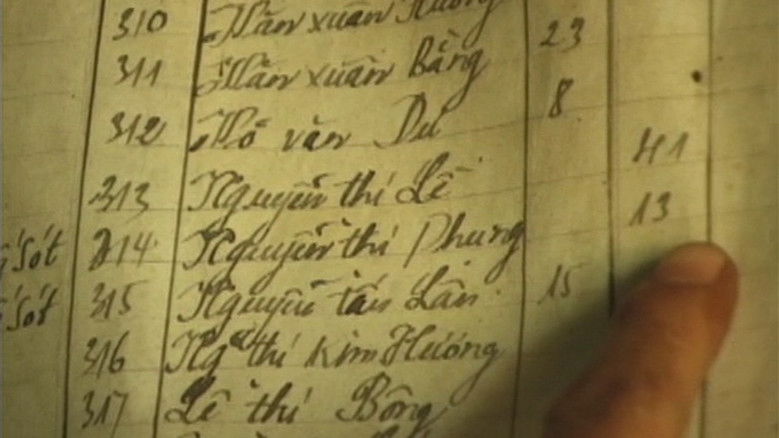 310 Văn xuân Hương
311 Văn xuân Bảng 23
312 Võ văn Du 8
313 Nguyễn thị Lê 41
sót 314 Nguyễn thị Phung 13
sót 315 Nguyễn tấn Lân 15
316 Ng thị Kim Hương
317 Lê thị Bông